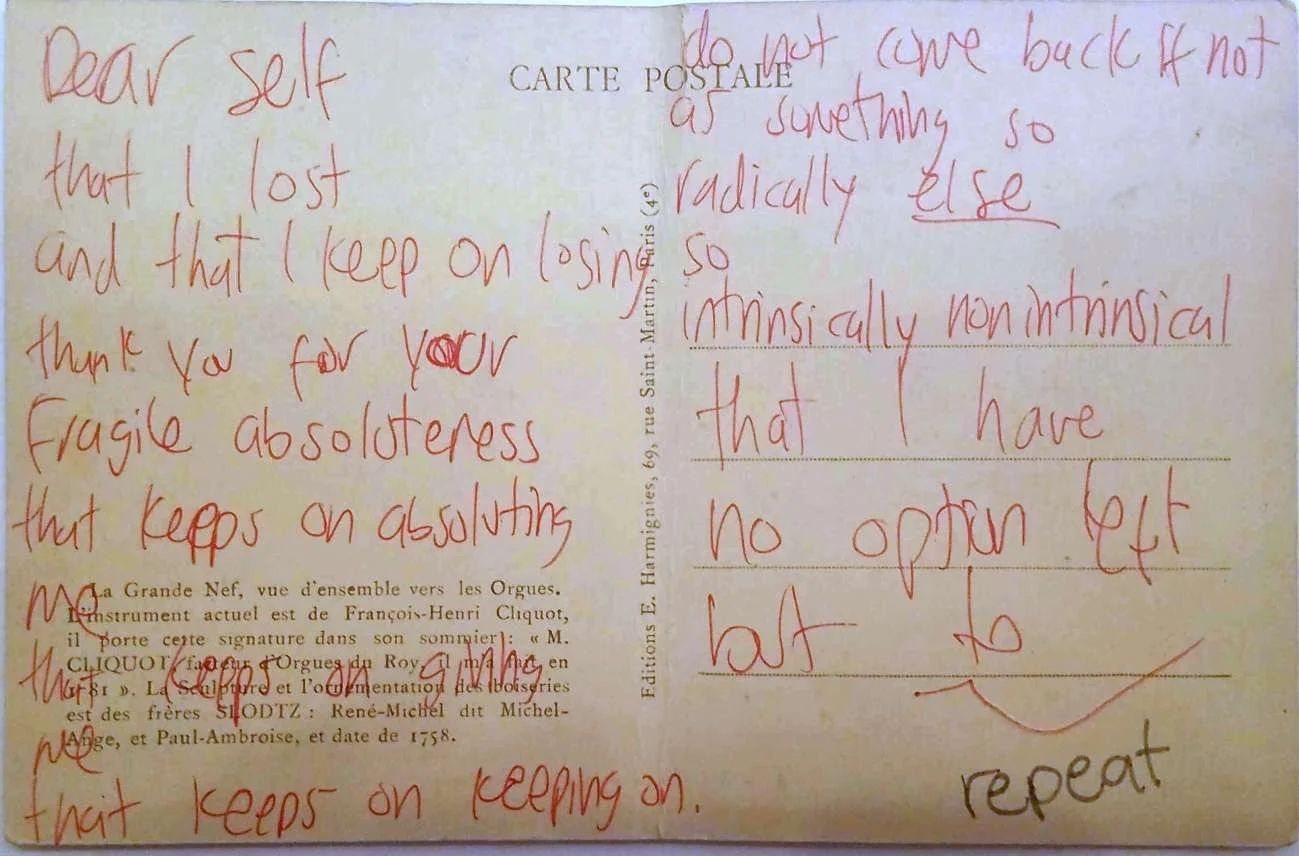 Dear self
that I lost
and that I keep on losing
thank you for your
Fragile absoluteness
that keepps on absoluting
me
that keeps on giving
me
that keeps on keeping on.
CARTE POSTALE
La Grande Nef, vue d'ensemble vers les Orgues.
L'instrument actuel est de François-Henri Cliquot,
il porte cette signature dans son sommier : « M.
CLIQUOT, facteur d'Orgues du Roy, il m'a fait en
1781 ». La Sculpture et l'ornementation des boiseries
est des frères SLODTZ : René-Michel dit Michel-
Ange, et Paul-Ambroise, et date de 1758.
Editions E. Harmignies, 69, rue Saint-Martin, Paris (4e)
do not come back if not
as something so
radically else
so
intrinsically nonintrinsical
that I have
no option left
but to
repeat